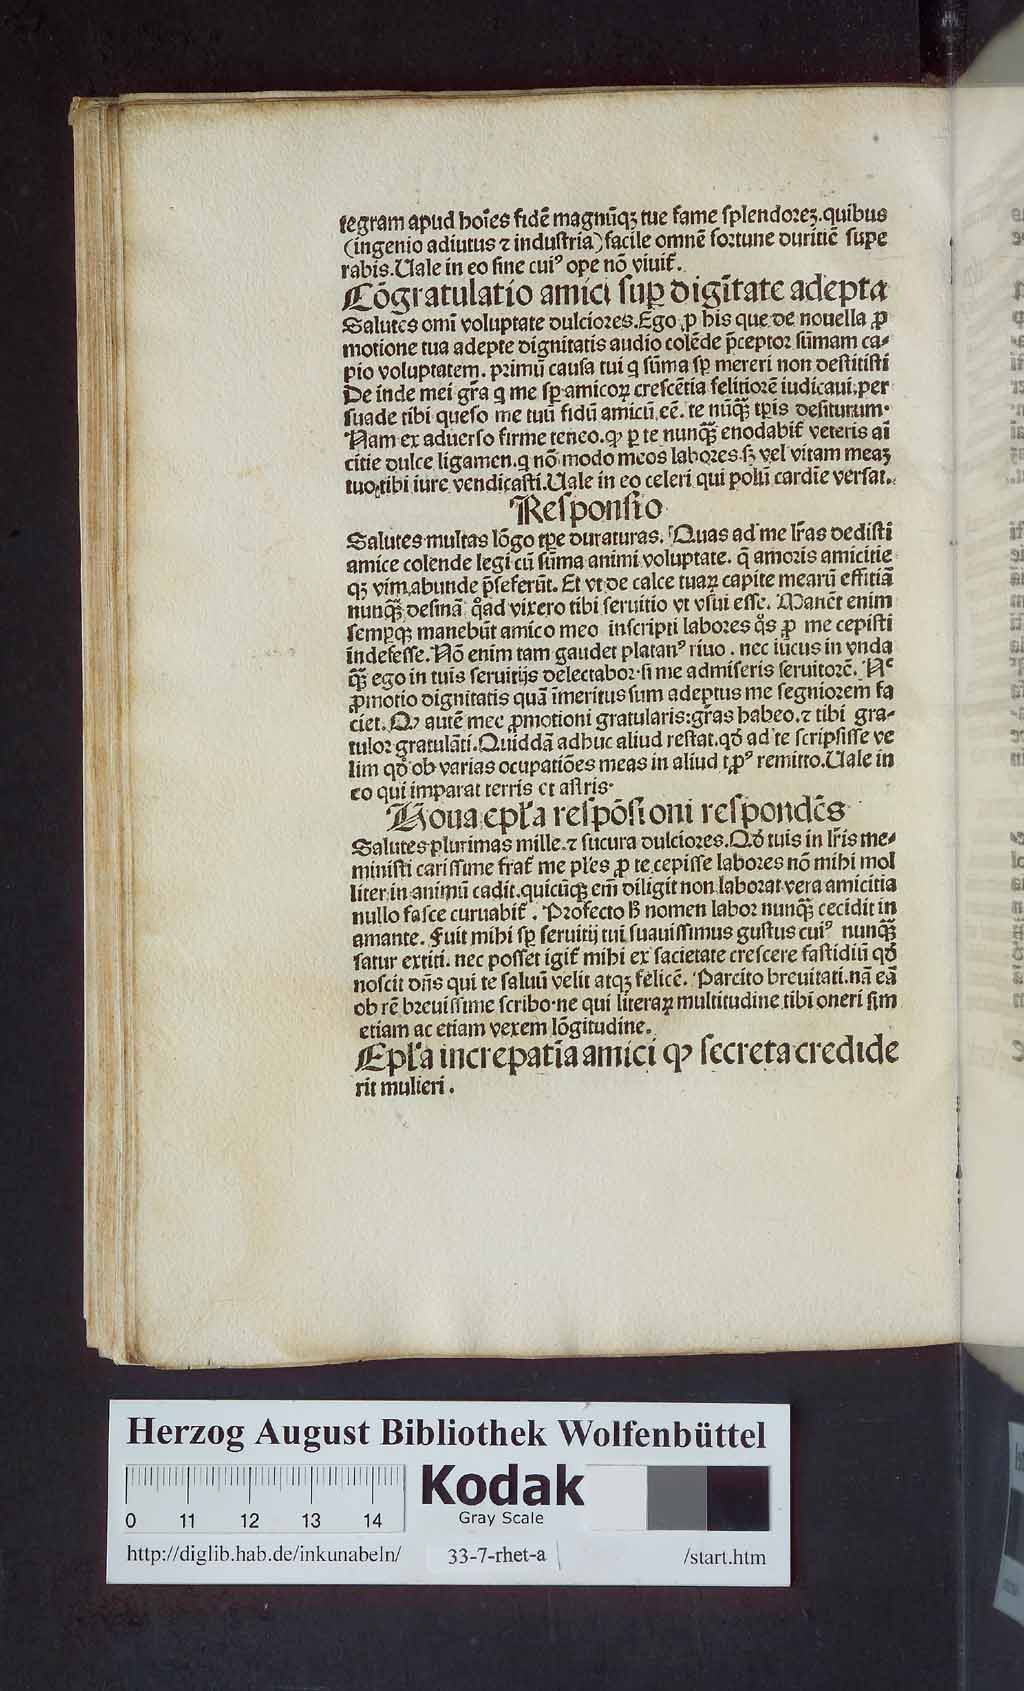 tegram apud hoīes fidē magnūqȝ tue fame ſplendoreȝ.quibus
(ingenio adiutus ⁊ induſtria)facile omnē fortune duritiē ſupe
rabis.Uale in eo ſine cuiꝰ ope nō viuit̄.
Cōgratulatio amici ſuꝑ digītate adepta
Salutes omī voluptate dulciores.Ego ꝓ his que de nouella ꝓ
motione tua adepte dignitatis audio colēde p̄ceptor ſūmam ca⸗
pio voluptatem. primū cauſa tui q ſūma ſꝑ mereri non deſtitiſti
De inde mei gr̄a q me ſꝑ amicoꝝ creſcētia felitiorē iudicaui.per
ſuade tibi queſo me tuū fidū amicū eē. te nūqȝ̄ tꝑis deſiturum.
Nam ex aduerſo firme teneo.ꝙ ꝑ te nunqȝ̄ enodabit̄ veteris ai
citie dulce ligamen.q nō modo meos labores.ſȝ vel vitam meaȝ
tuo tibi iure vendicaſti.Uale in eo celeri qui polū cardīe verſat.
Reſponſio
Salutes multas lōgo tꝑe duraturas. Quas ad me lr̄as dediſti
amice colende legi cū ſūma animi voluptate. q̄ amoris amicitie
qȝ vim abunde p̄ſeferūt. Et vt de calce tuaꝝ capite mearū effitiā
nunqȝ̄ deſinā qͦad vixero tibi ſeruitio vt vſui eſſe. Manēt enim
ſemꝑqȝ manebūt amico meo inſcripti labores qͦs ꝓ me cepiſti
īndefeſſe. Nō enim tam gaudet platanꝰ riuo . nec iūcus in vnda
qȝ̄ ego in tuis ſeruitijs delectabor ſi me admiſeris ſeruitorē. Nᶜ
ꝓmotio dignitatis quā īmeritus ſum adeptus me ſegniorem fa
ciet. Ꝙ autē mee ꝓmotioni gratularis:gr̄as habeo.⁊ tibi gra⸗
tulor gratulāti.Quiddā adhuc aliud reſtat.qđ ad te ſcripſiſſe ve
lim qđ ob varias ocupatiōes meas in aliud tꝑꝰ remitto.Uale in
eo qui imparat terris et aſtris.
Noua epl̄a reſpōſioni reſpondēs
Salutes plurimas mille.⁊ ſucura dulciores.Qđ tuis in lr̄is me⸗
miniſti cariſſime frat̄ me pl̄es ꝓ te cepiſſe labores nō mihi mol
liter in animū cadit.quicūqȝ em̄ diligit non laborat vera amicitia
nullo faſce curuabit̄ . Profecto h̄ nomen labor nunqȝ̄ cecidit in
amante. Fuit mihi ſꝑ ſeruitij tui ſuauiſſimus guſtus cuiꝰ nunqȝ̄
ſatur extiti. nec poſſet igit̄ mihi ex ſacietate creſcere faſtidiū qđ
noſcit dn̄s qui te ſaluū velit atqȝ felicē. Parcito breuitati.nā eā
ob rē breuiſſime ſcribo.ne qui literaꝝ multitudine tibi oneri ſim
etiam ac etiam vexem lōgitudine.
Epl̄a increpatīa amici ꝙ ſecreta credide
rit mulieri .
Herzog August Bibliothek Wolfenbüttel
Kodak
Gray Scale
0 11 12 13 14
http://diglib.hab.de/inkunabeln/ 33-7-rhet-a /start.htm